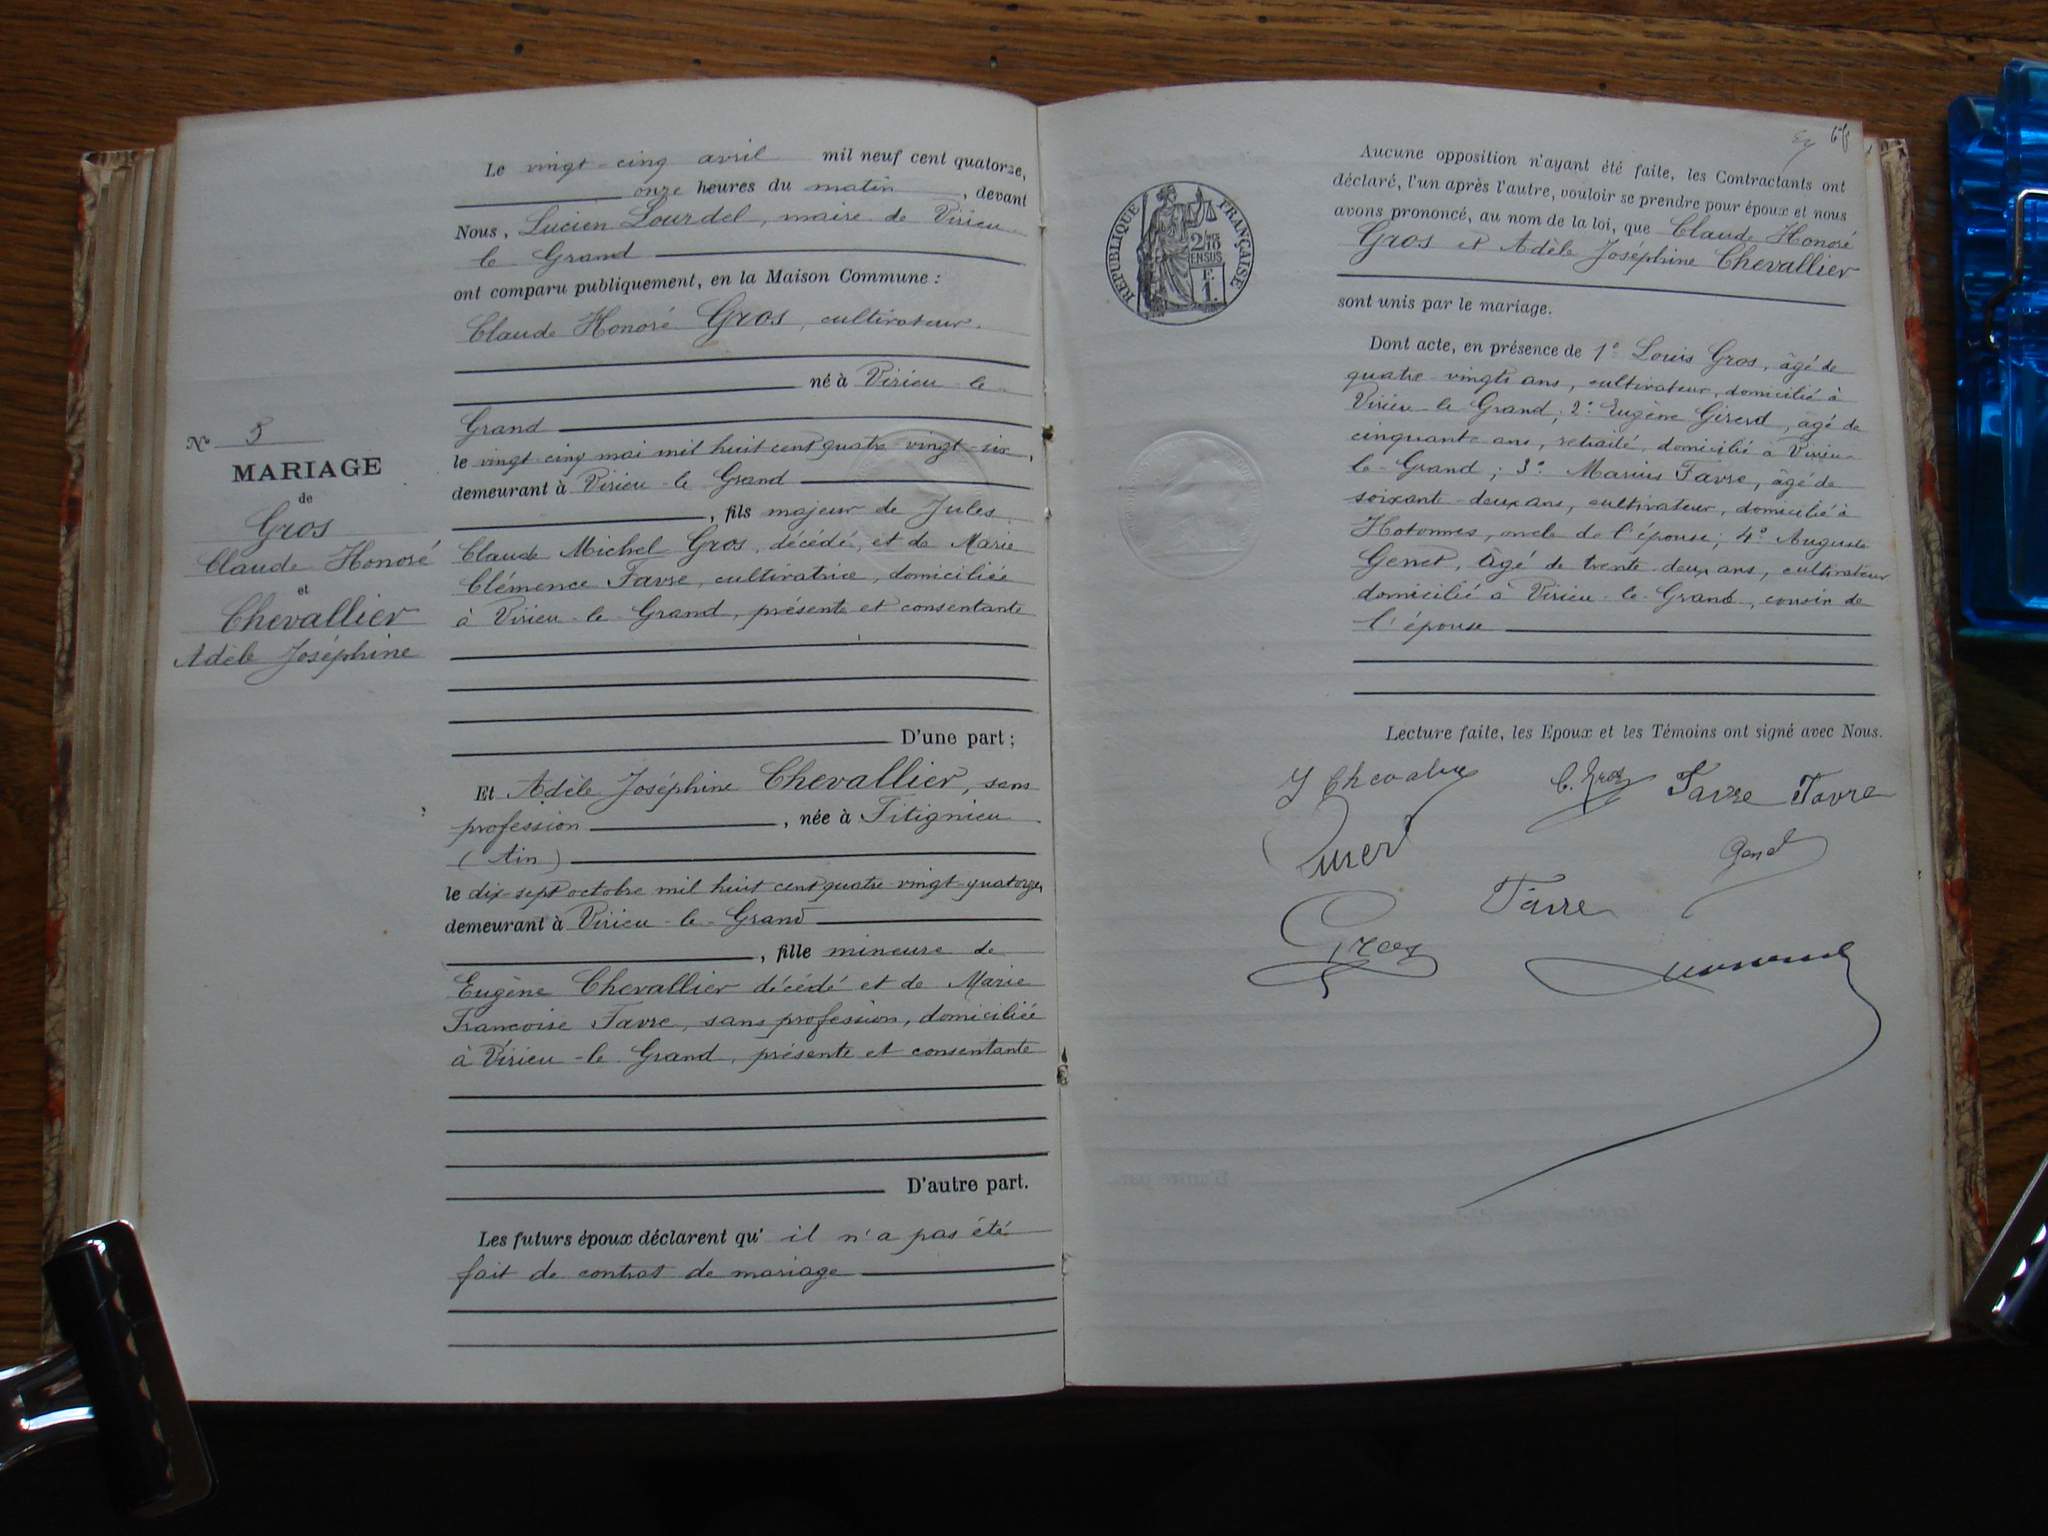 Nº 5
MARIAGE
de
Gros
Claude Honoré
et
Chevallier
Adèle Joséphine
Le vingt-cinq avril mil neuf cent quatorze,
onze heures du matin, devant
Nous, Lucien Lourdel, maire de Virieu
le Grand
ont comparu publiquement, en la Maison Commune :
Claude Honoré Gros, cultivateur.
né à Virieu-le-
Grand
le vingt-cinq mai mil huit cent quatre-vingt-six,
demeurant à Virieu-le-Grand
, fils majeur de Jules
Claude Michel Gros, décédé, et de Marie
Clémence Favre, cultivatrice, domiciliée
à Virieu-le-Grand, présente et consentante
D'une part ;
Et Adèle Joséphine Chevallier, sans
profession, née à Fitignieu
(Ain)
le dix-sept octobre mil huit cent quatre-vingt-quatorze,
demeurant à Virieu-le-Grand
, fille mineure de
Eugène Chevallier décédé et de Marie
Françoise Favre, sans profession, domiciliée
à Virieu-le-Grand, présente et consentante
D'autre part.
Les futurs époux déclarent qu'il n'a pas été
fait de contrat de mariage
RÉPUBLIQUE FRANÇAISE
2/10
EN SUS
F.
1.
Aucune opposition n'ayant été faite, les Contractants ont
déclaré, l'un après l'autre, vouloir se prendre pour époux et nous
avons prononcé, au nom de la loi, que Claude Honoré
Gros et Adèle Joséphine Chevallier
sont unis par le mariage.
Dont acte, en présence de 1º Louis Gros, âgé de
quatre-vingts ans, cultivateur, domicilié à
Virieu-le-Grand; 2º Eugène Girerd, âgé de
cinquante ans, retraité, domicilié à Virieu-
le-Grand; 3º Marius Favre, âgé de
soixant-deux ans, cultivateur, domicilié à
Hotonnes, oncle de l'épouse; 4º Auguste
Genet, âgé de trente-deux ans, cultivateur
domicilié à Virieu-le-Grand, cousin de
l'épouse
Lecture faite, les Epoux et les Témoins ont signé avec Nous.
J Chevalier C. Gros Favre Favre
Genet
Favre
Gros